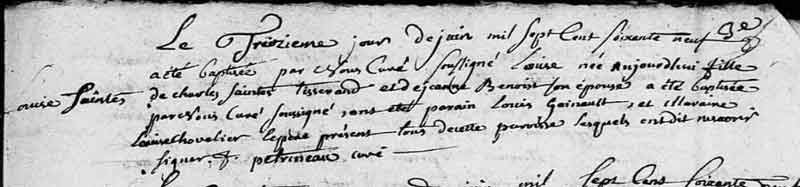 Le Treizieme jour de juin mil sept Cent soixente neuf
a eté baptisée par Nous Curé soussigné Louise née aujourdhui fille
Louise Saintes
de charles Saintes Tisserand et de jeanne Benoist son épouse a été baptisée
par Nous Curé soussigné, ont été parain Louis Gainault, et Maraine
Louise Chevalier le père présent tous de cette paroisse lesquels ont dit ne savoir
signer. f. petrineau curé
mil sept Cens soixante